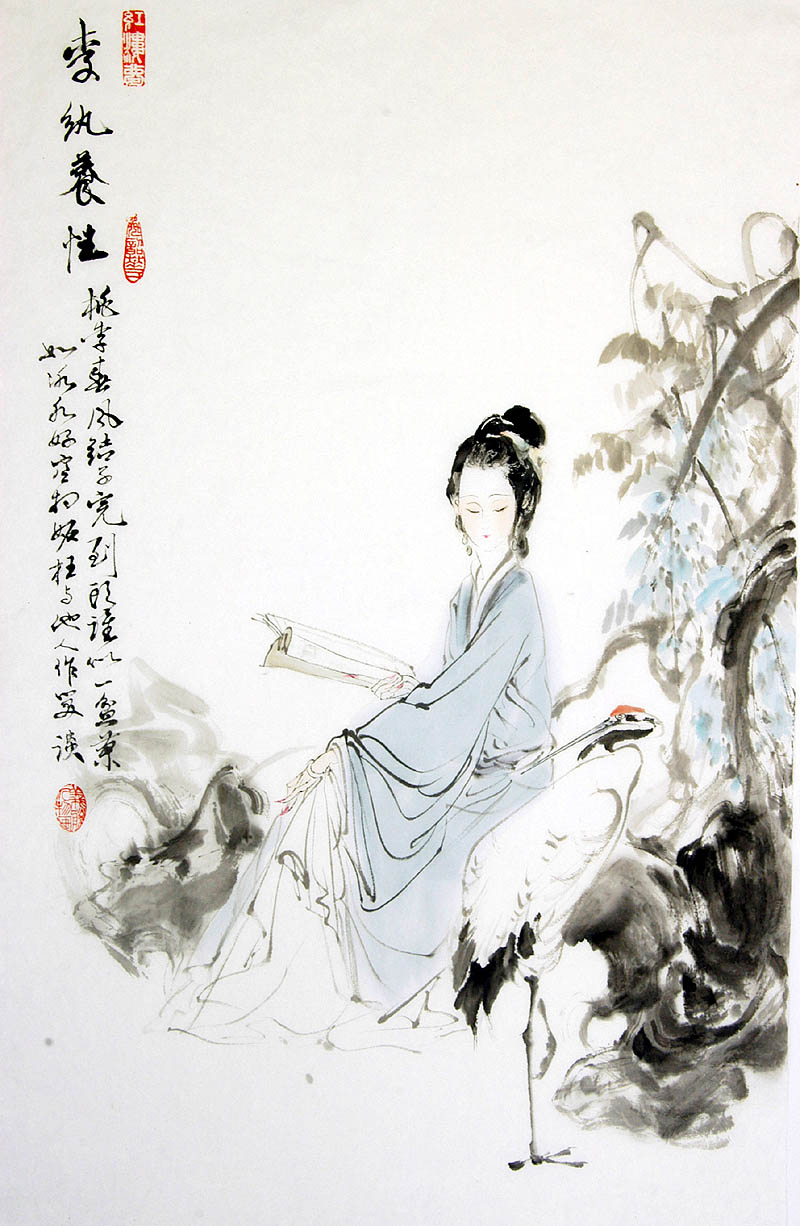 李紈養性
桃李春风結子完到头誰似一盆蘭
如冰水好空相妒枉与他人作笑談